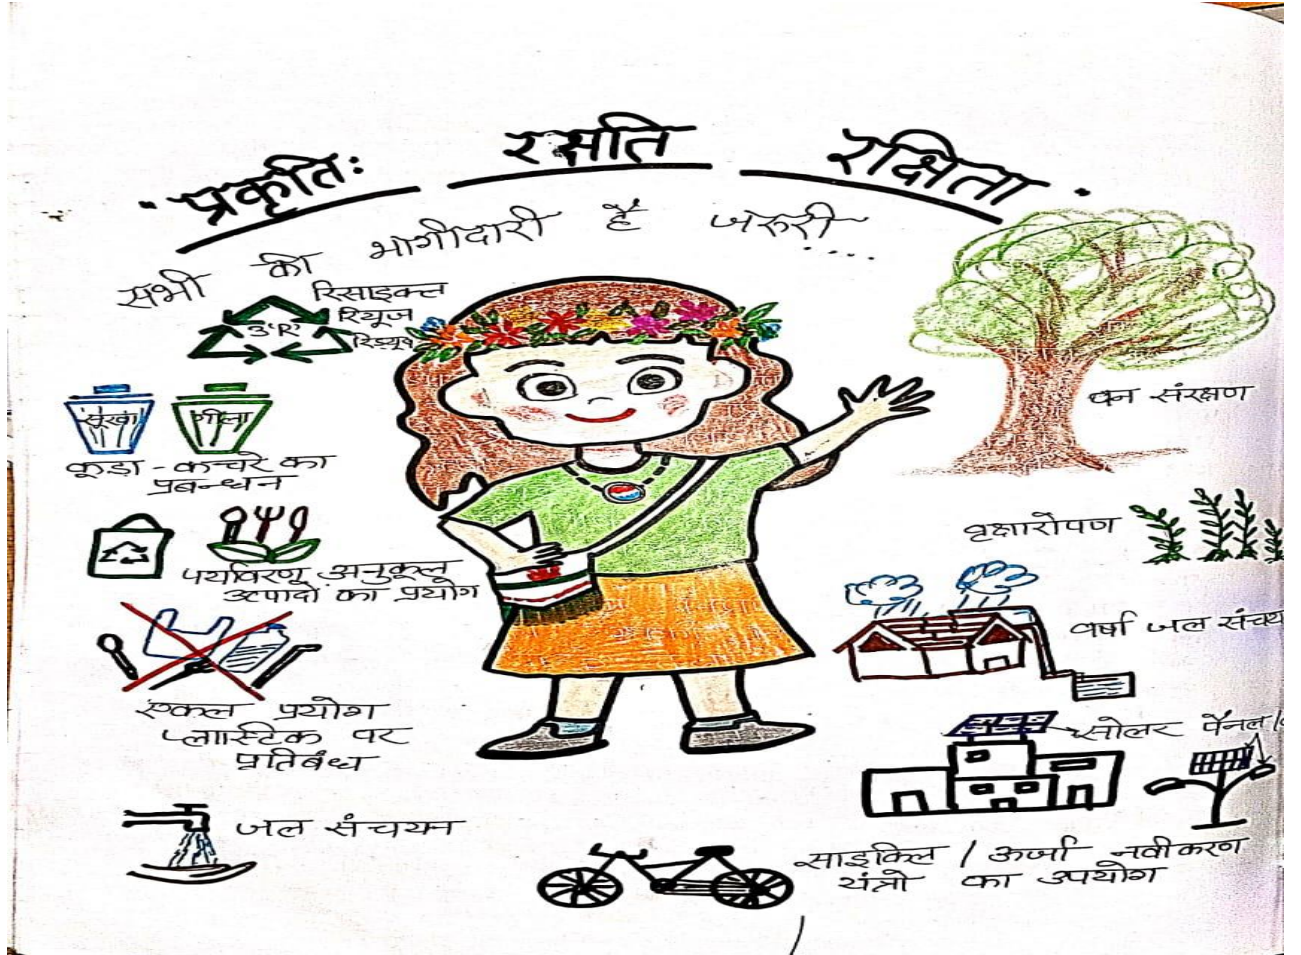 प्रकृतिः रक्षति रक्षिता
सभी की भागीदारी है जरुरी....
रिसाइक्ल
रियूज
3'R'
सूखा
गीला
कूड़ा-कचरे का
प्रबन्धन
पर्यावरण अनुकूल
उत्पादों का प्रयोग
एकल प्रयोग
प्लास्टिक पर
प्रतिबंध
जल संचयन
वन संरक्षण
वृक्षारोपण
वर्षा जल संचय
सोलर पैनल/
साइकिल / ऊर्जा नवीकरण
यंत्रो का उपयोग